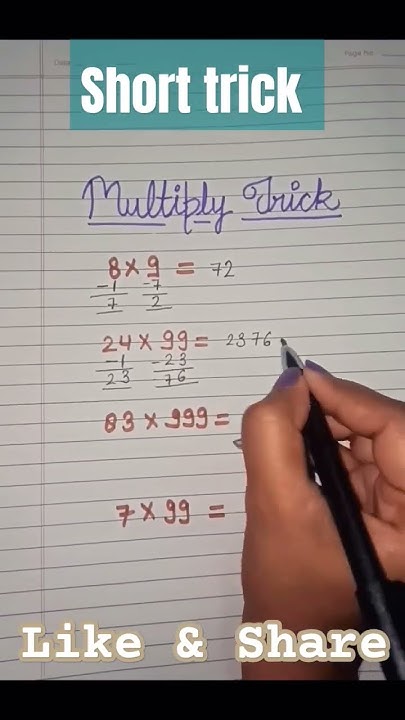 Page No
Short trick
Multiply Trick
8 × 9 = 72
-1 -7
7 2
24 × 99 = 2376
-1 -23
23 76
83 × 999 =
7 × 99 =
Like & Share